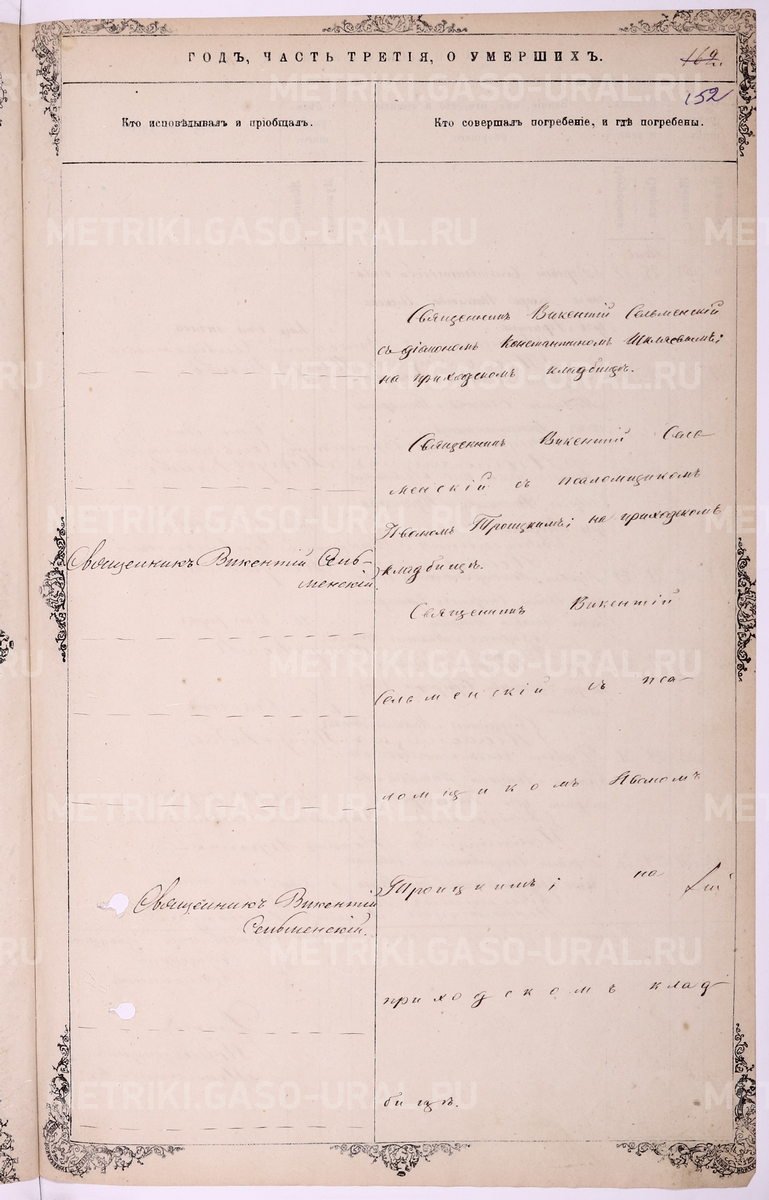 ГОДЪ, ЧАСТЬ ТРЕТІЯ, О УМЕРШИХЪ.
169
152
Кто исповѣдывалъ и пріобщалъ.
Кто совершалъ погребеніе, и гдѣ погребены.
Священникъ Викентій Сельменскій
съ діакономъ Константиномъ
на приходскомъ кладбищѣ.
Священникъ Викентій Сель-
менскій съ псаломщикомъ
Иваномъ Троицкимъ; на приходскомъ
кладбищѣ.
Священникъ Викентій Сель-
менскій
Священникъ Викентій
Сельменскій съ пса-
ломщикомъ Иваномъ
Троицкимъ; на
приходскомъ клад-
бищѣ.
Священникъ Викентій
Сельменскій.
METRIKI.GASO-URAL.RU